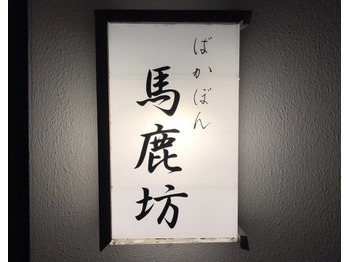 ばかぼん
馬鹿坊